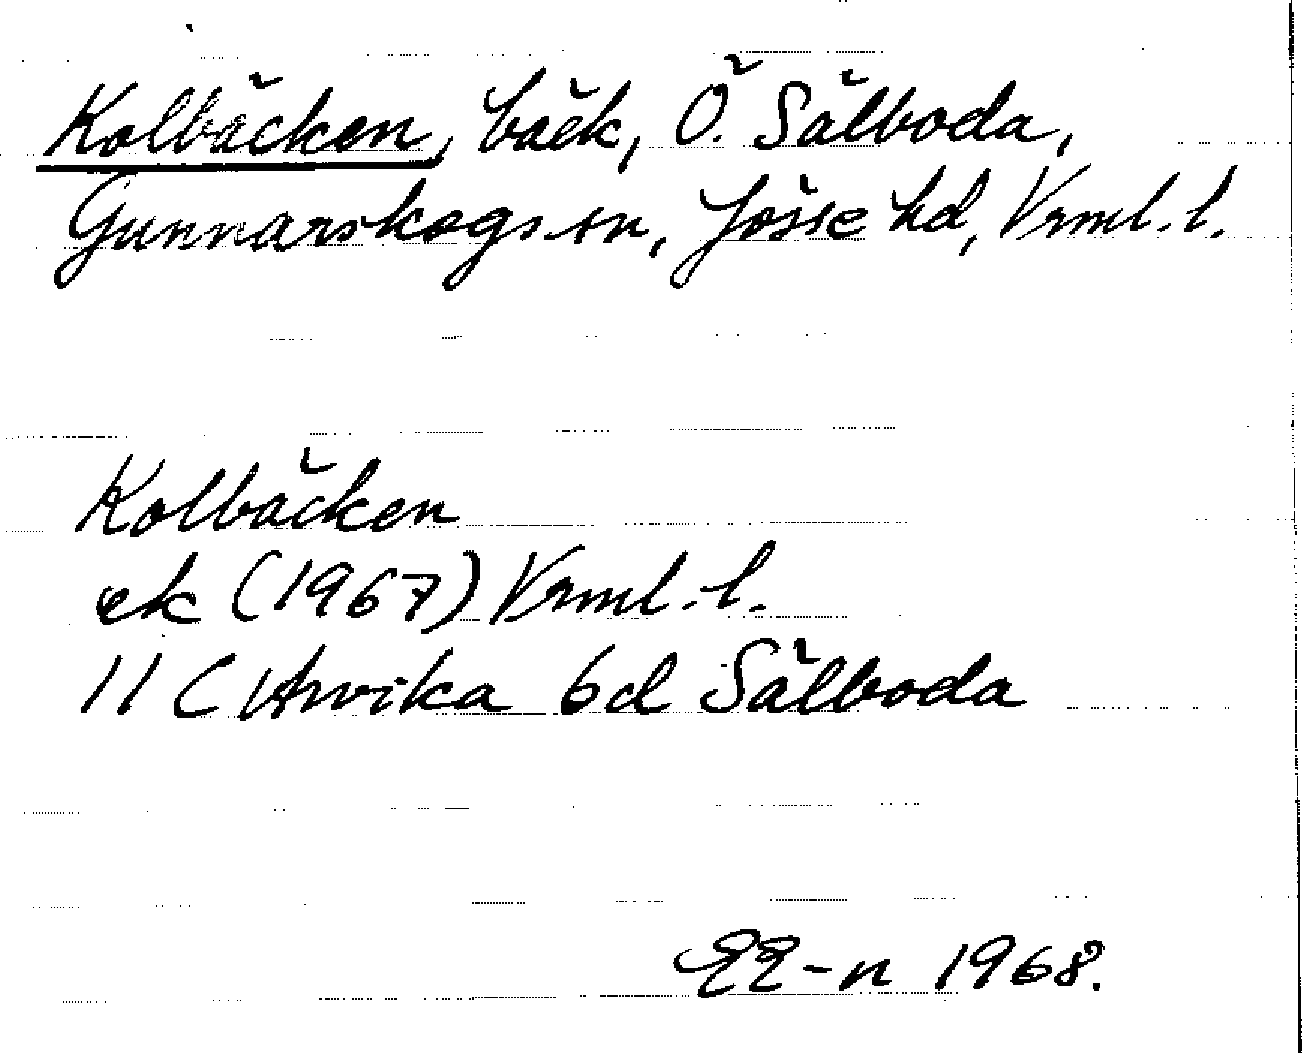 Kolbäcken, bäck, Ö. Sälboda,
Gunnarskogs sn, Jösse hd, Vrml. l.
Kolbäcken
ek (1967) Vrml. l.
11 C Arvika 6d Sälboda
EE-n 1968.